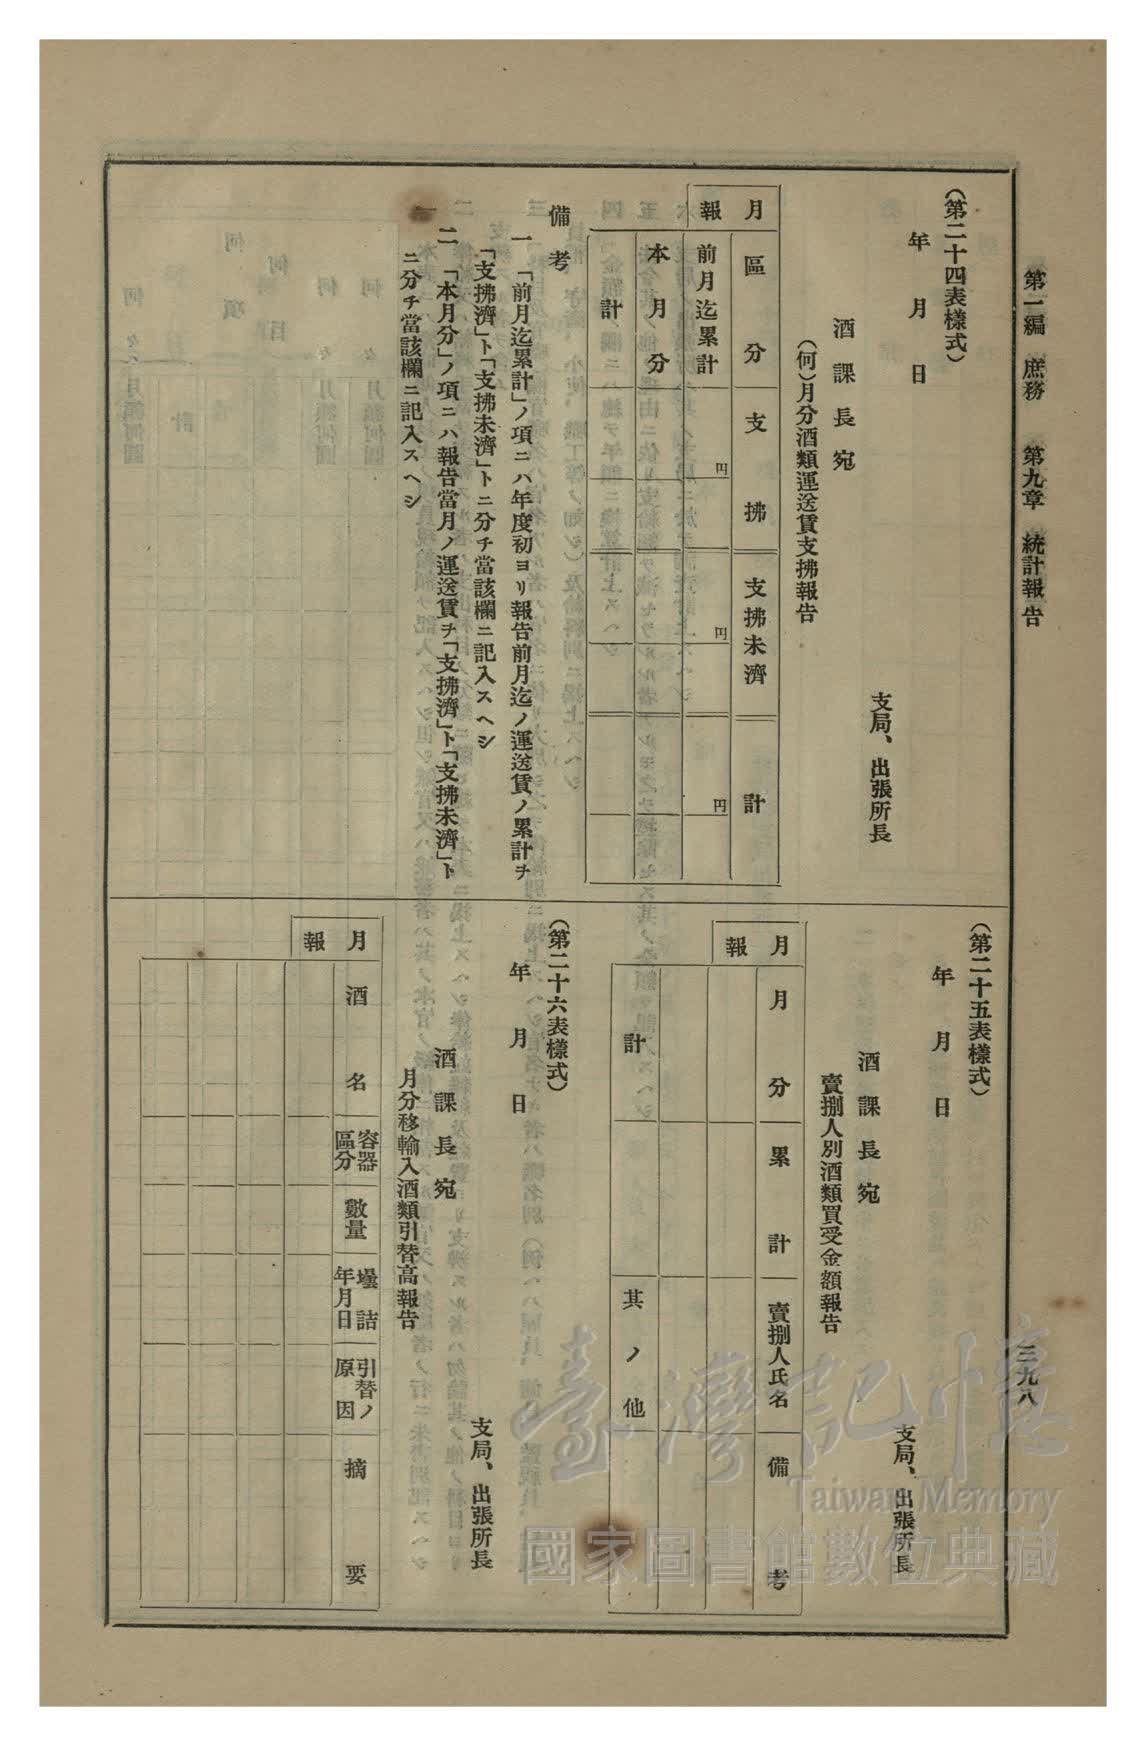 第一編 庶務 第九章 統計報告 三九八
(第二十四表樣式)
年 月 日
支局、出張所長
酒課長宛
(何)月分酒類運送賃支拂報告
月報
區分 支拂 支拂未濟 計
前月迄累計 円 円 円
本月分
計
備考
一 「前月迄累計」ノ項ニハ年度初ヨリ報告前月迄ノ運送賃ノ累計ヲ
「支拂濟」ト「支拂未濟」トニ分チ當該欄ニ記入スヘシ
二 「本月分」ノ項ニハ報告當月ノ運送賃ヲ「支拂濟」ト「支拂未濟」ト
ニ分チ當該欄ニ記入スヘシ
(第二十五表樣式)
年 月 日
支局、出張所長
酒課長宛
賣捌人別酒類買受金額報告
月報
月分 累計 賣捌人氏名 備考
計 其ノ他
(第二十六表樣式)
年 月 日
支局、出張所長
酒課長宛
月分移輸入酒類引替高報告
月報
酒名 容器區分 數量 壜詰年月日 引替ノ原因 摘要
臺灣記憶
Taiwan Memory
國家圖書館數位典藏